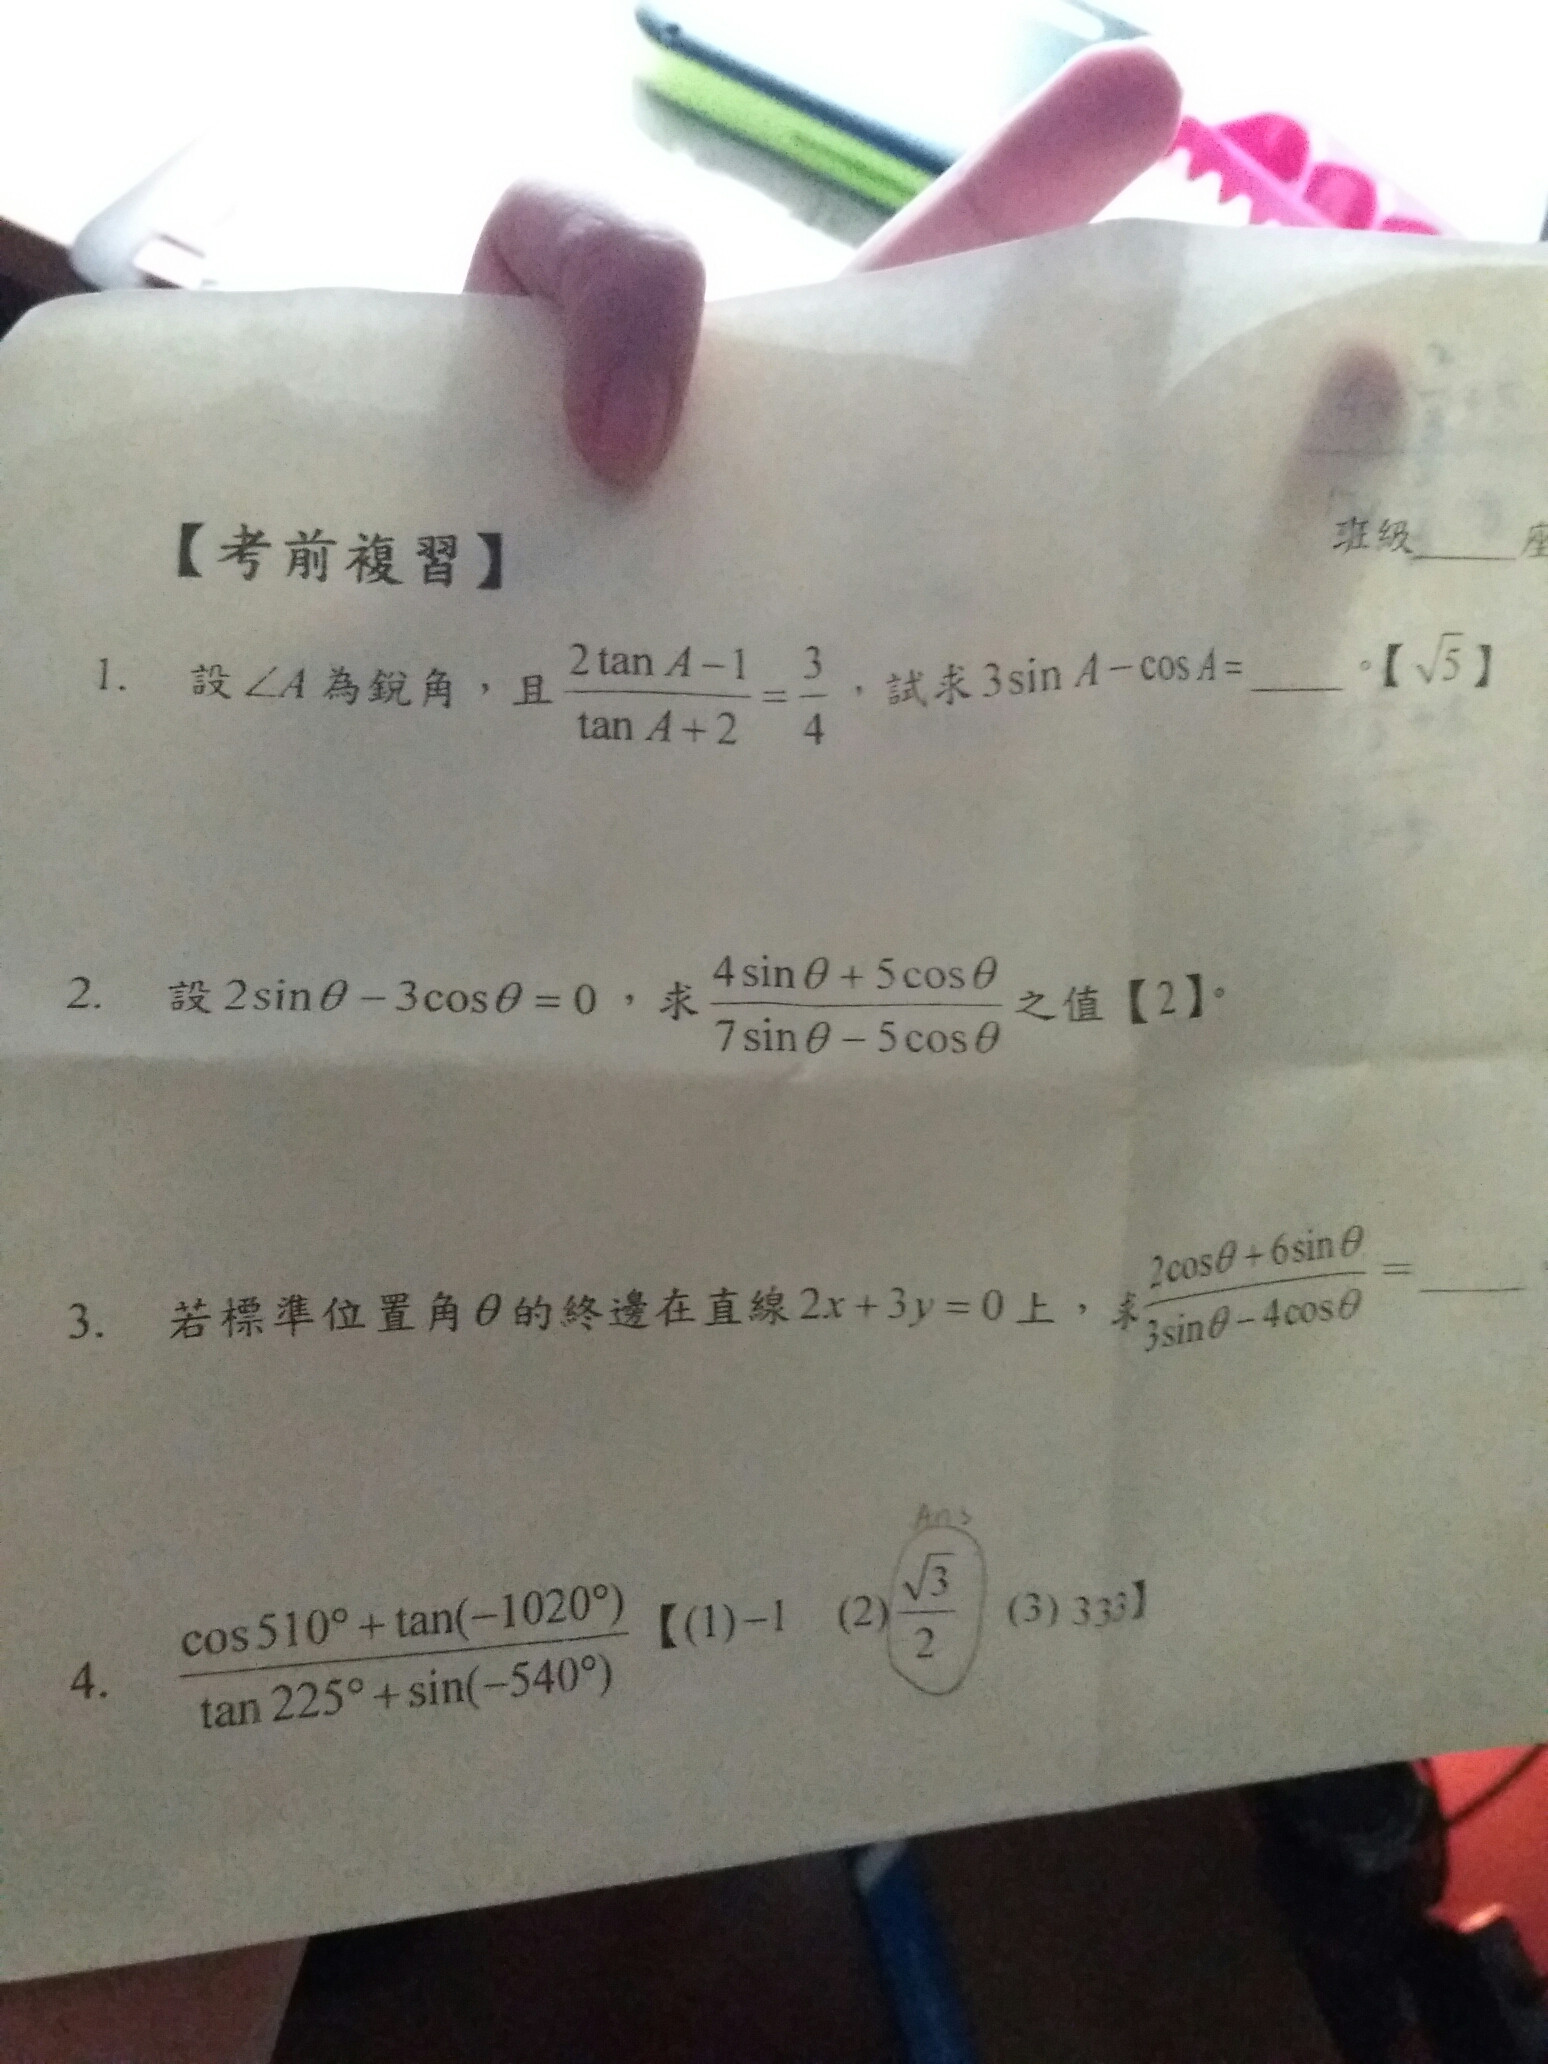 【考前複習】
班級____座
1. 設∠A為銳角，且 (2tan A−1)/(tan A+2) = 3/4，試求3sin A−cos A=____。【√5】
2. 設2sinθ−3cosθ=0，求 (4sinθ+5cosθ)/(7sinθ−5cosθ) 之值【2】。
3. 若標準位置角θ的終邊在直線2x+3y=0上，求 (2cosθ+6sinθ)/(3sinθ−4cosθ) =____
Ans
4. (cos510°+tan(−1020°))/(tan225°+sin(−540°)) 【(1)−1 (2)√3/2 (3)333】